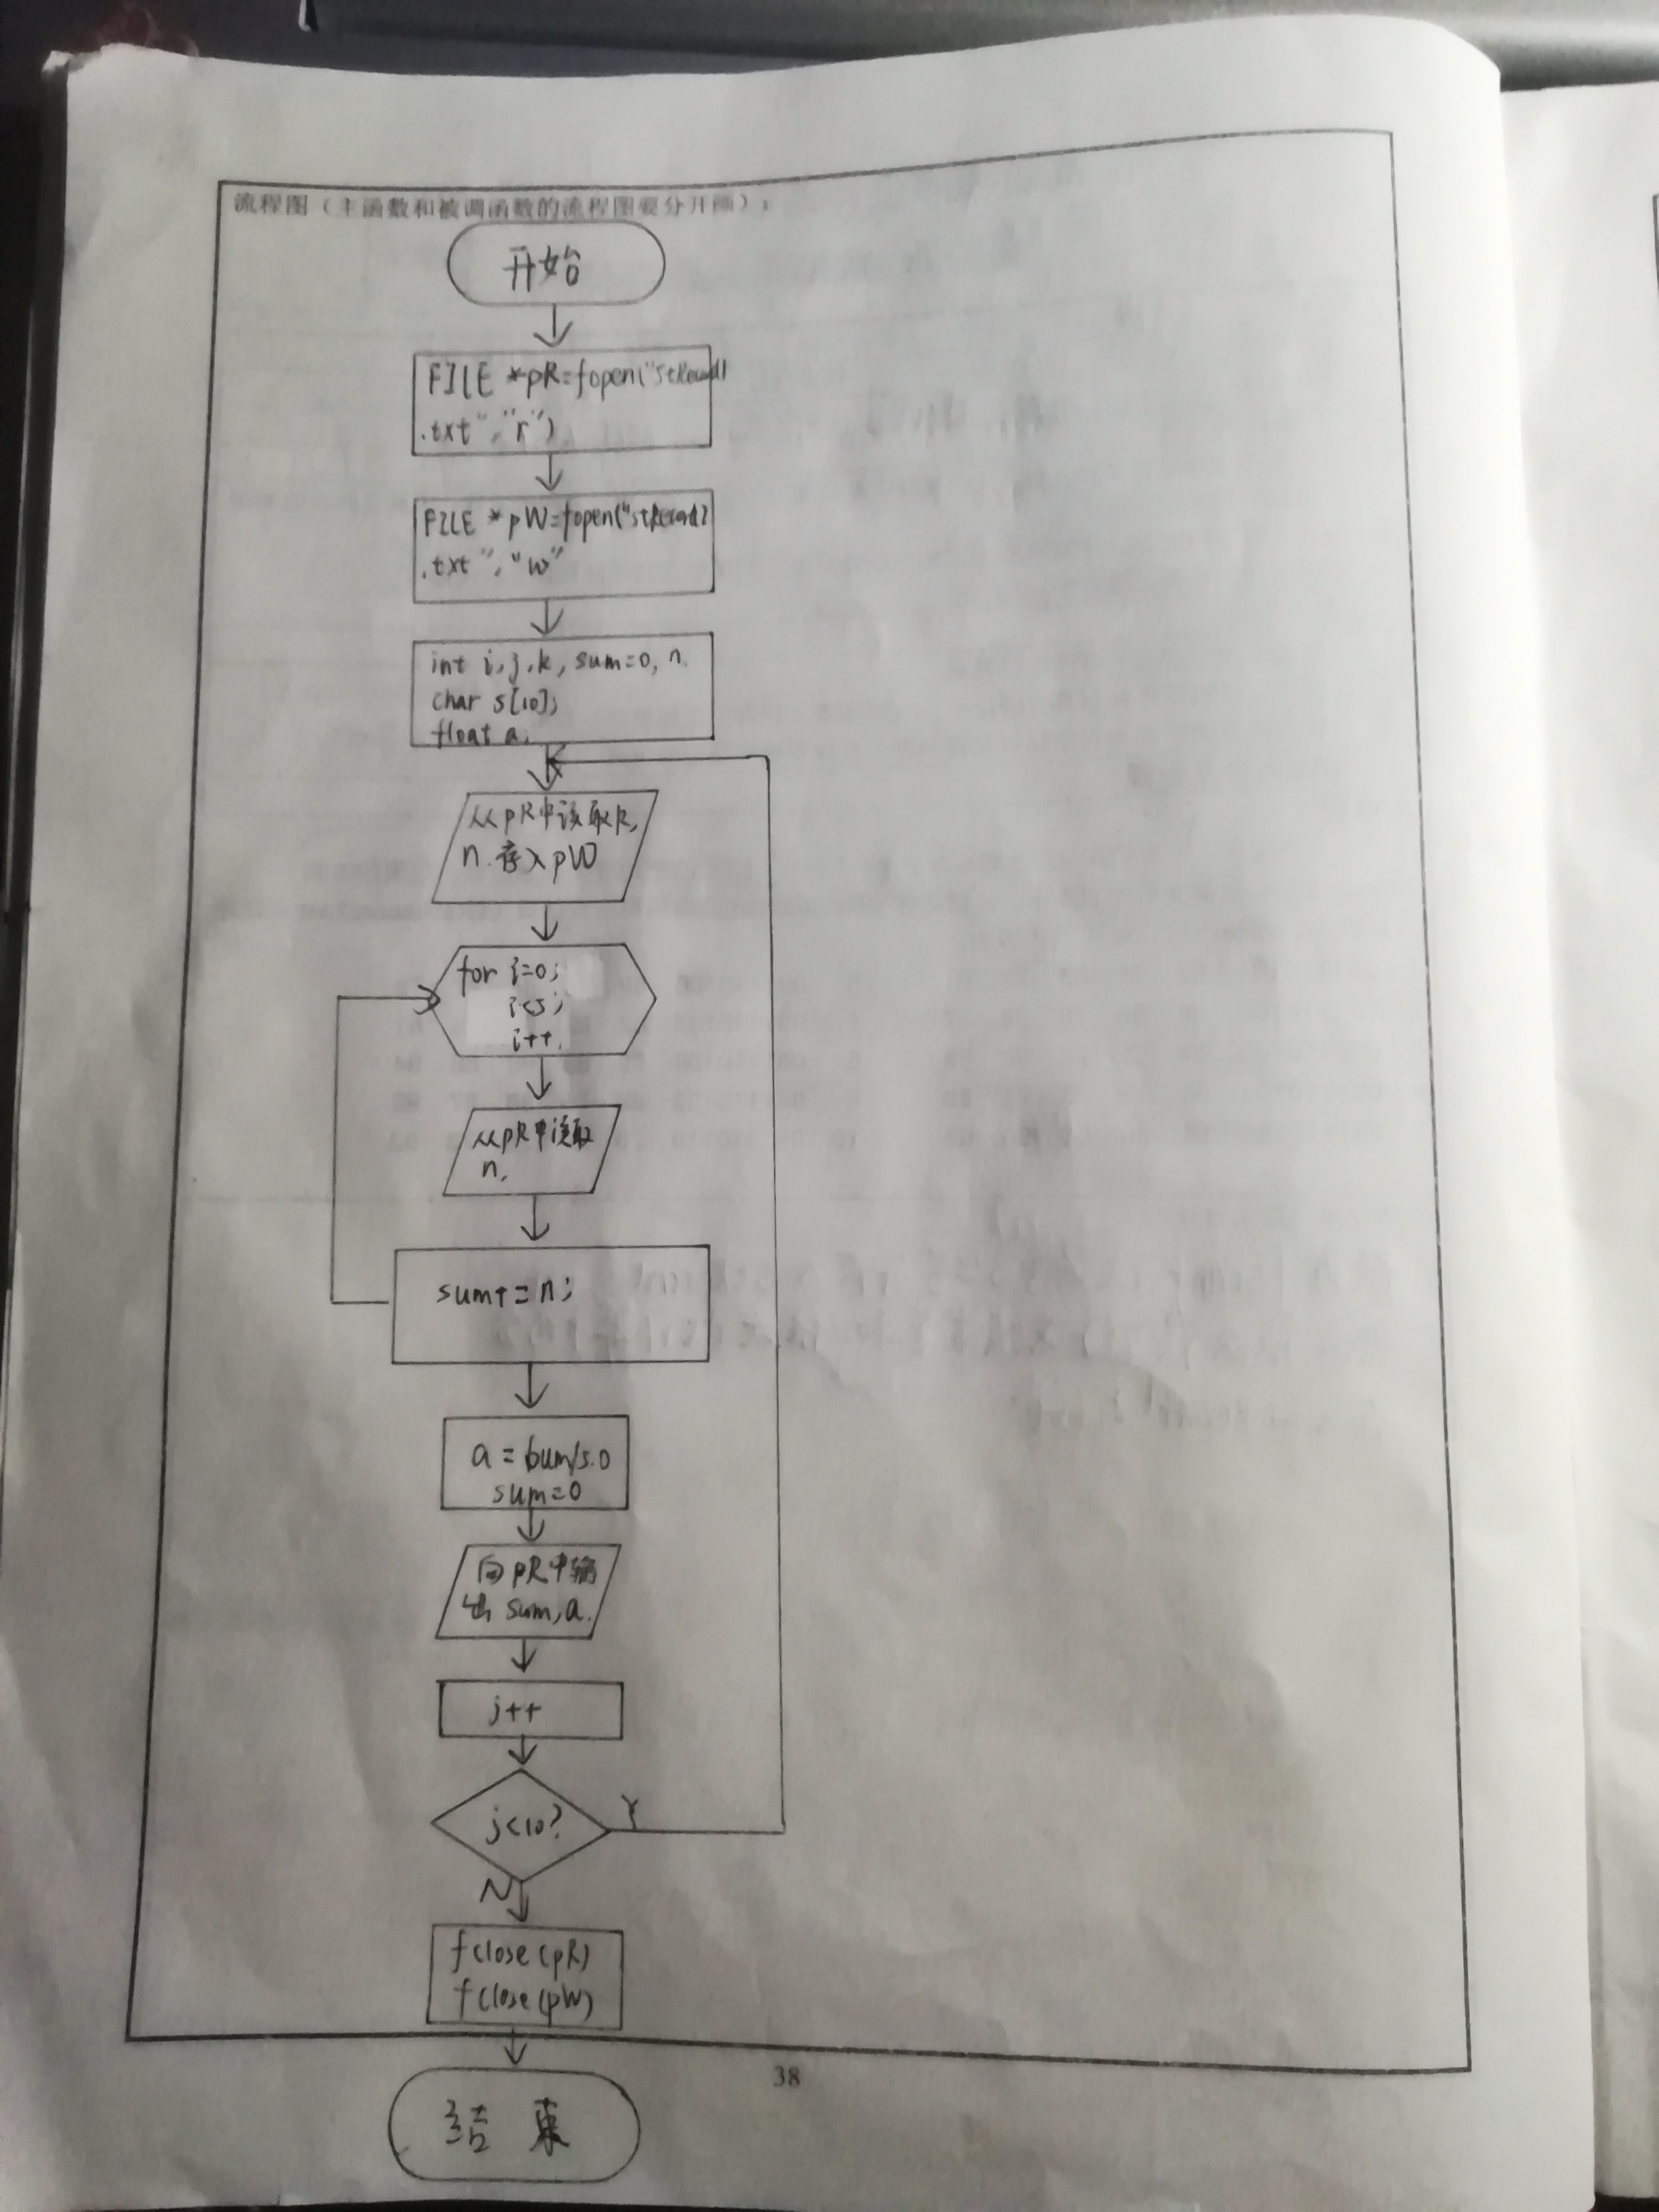 流程图（主函数和被调函数的流程图要分开画）：
开始
FILE *pR=fopen("stRecord1
.txt","r")
FILE *pW=fopen("stRecord2
.txt","w"
int i,j,k,sum=0,n.
char s[10];
float a.
从pR中读取k,
n.存入pW
for i=0;
i<5;
i++.
从pR中读取
n.
sum+=n;
a=bum/5.0
sum=0
向pR中输
出sum,a.
j++
j<10?
Y
N
fclose(pR)
fclose(pW)
38
结束